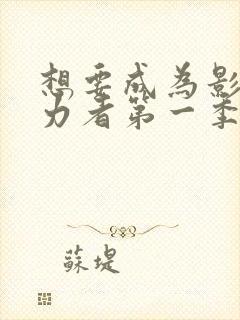 想要成为影
力者第一季
蘇堤